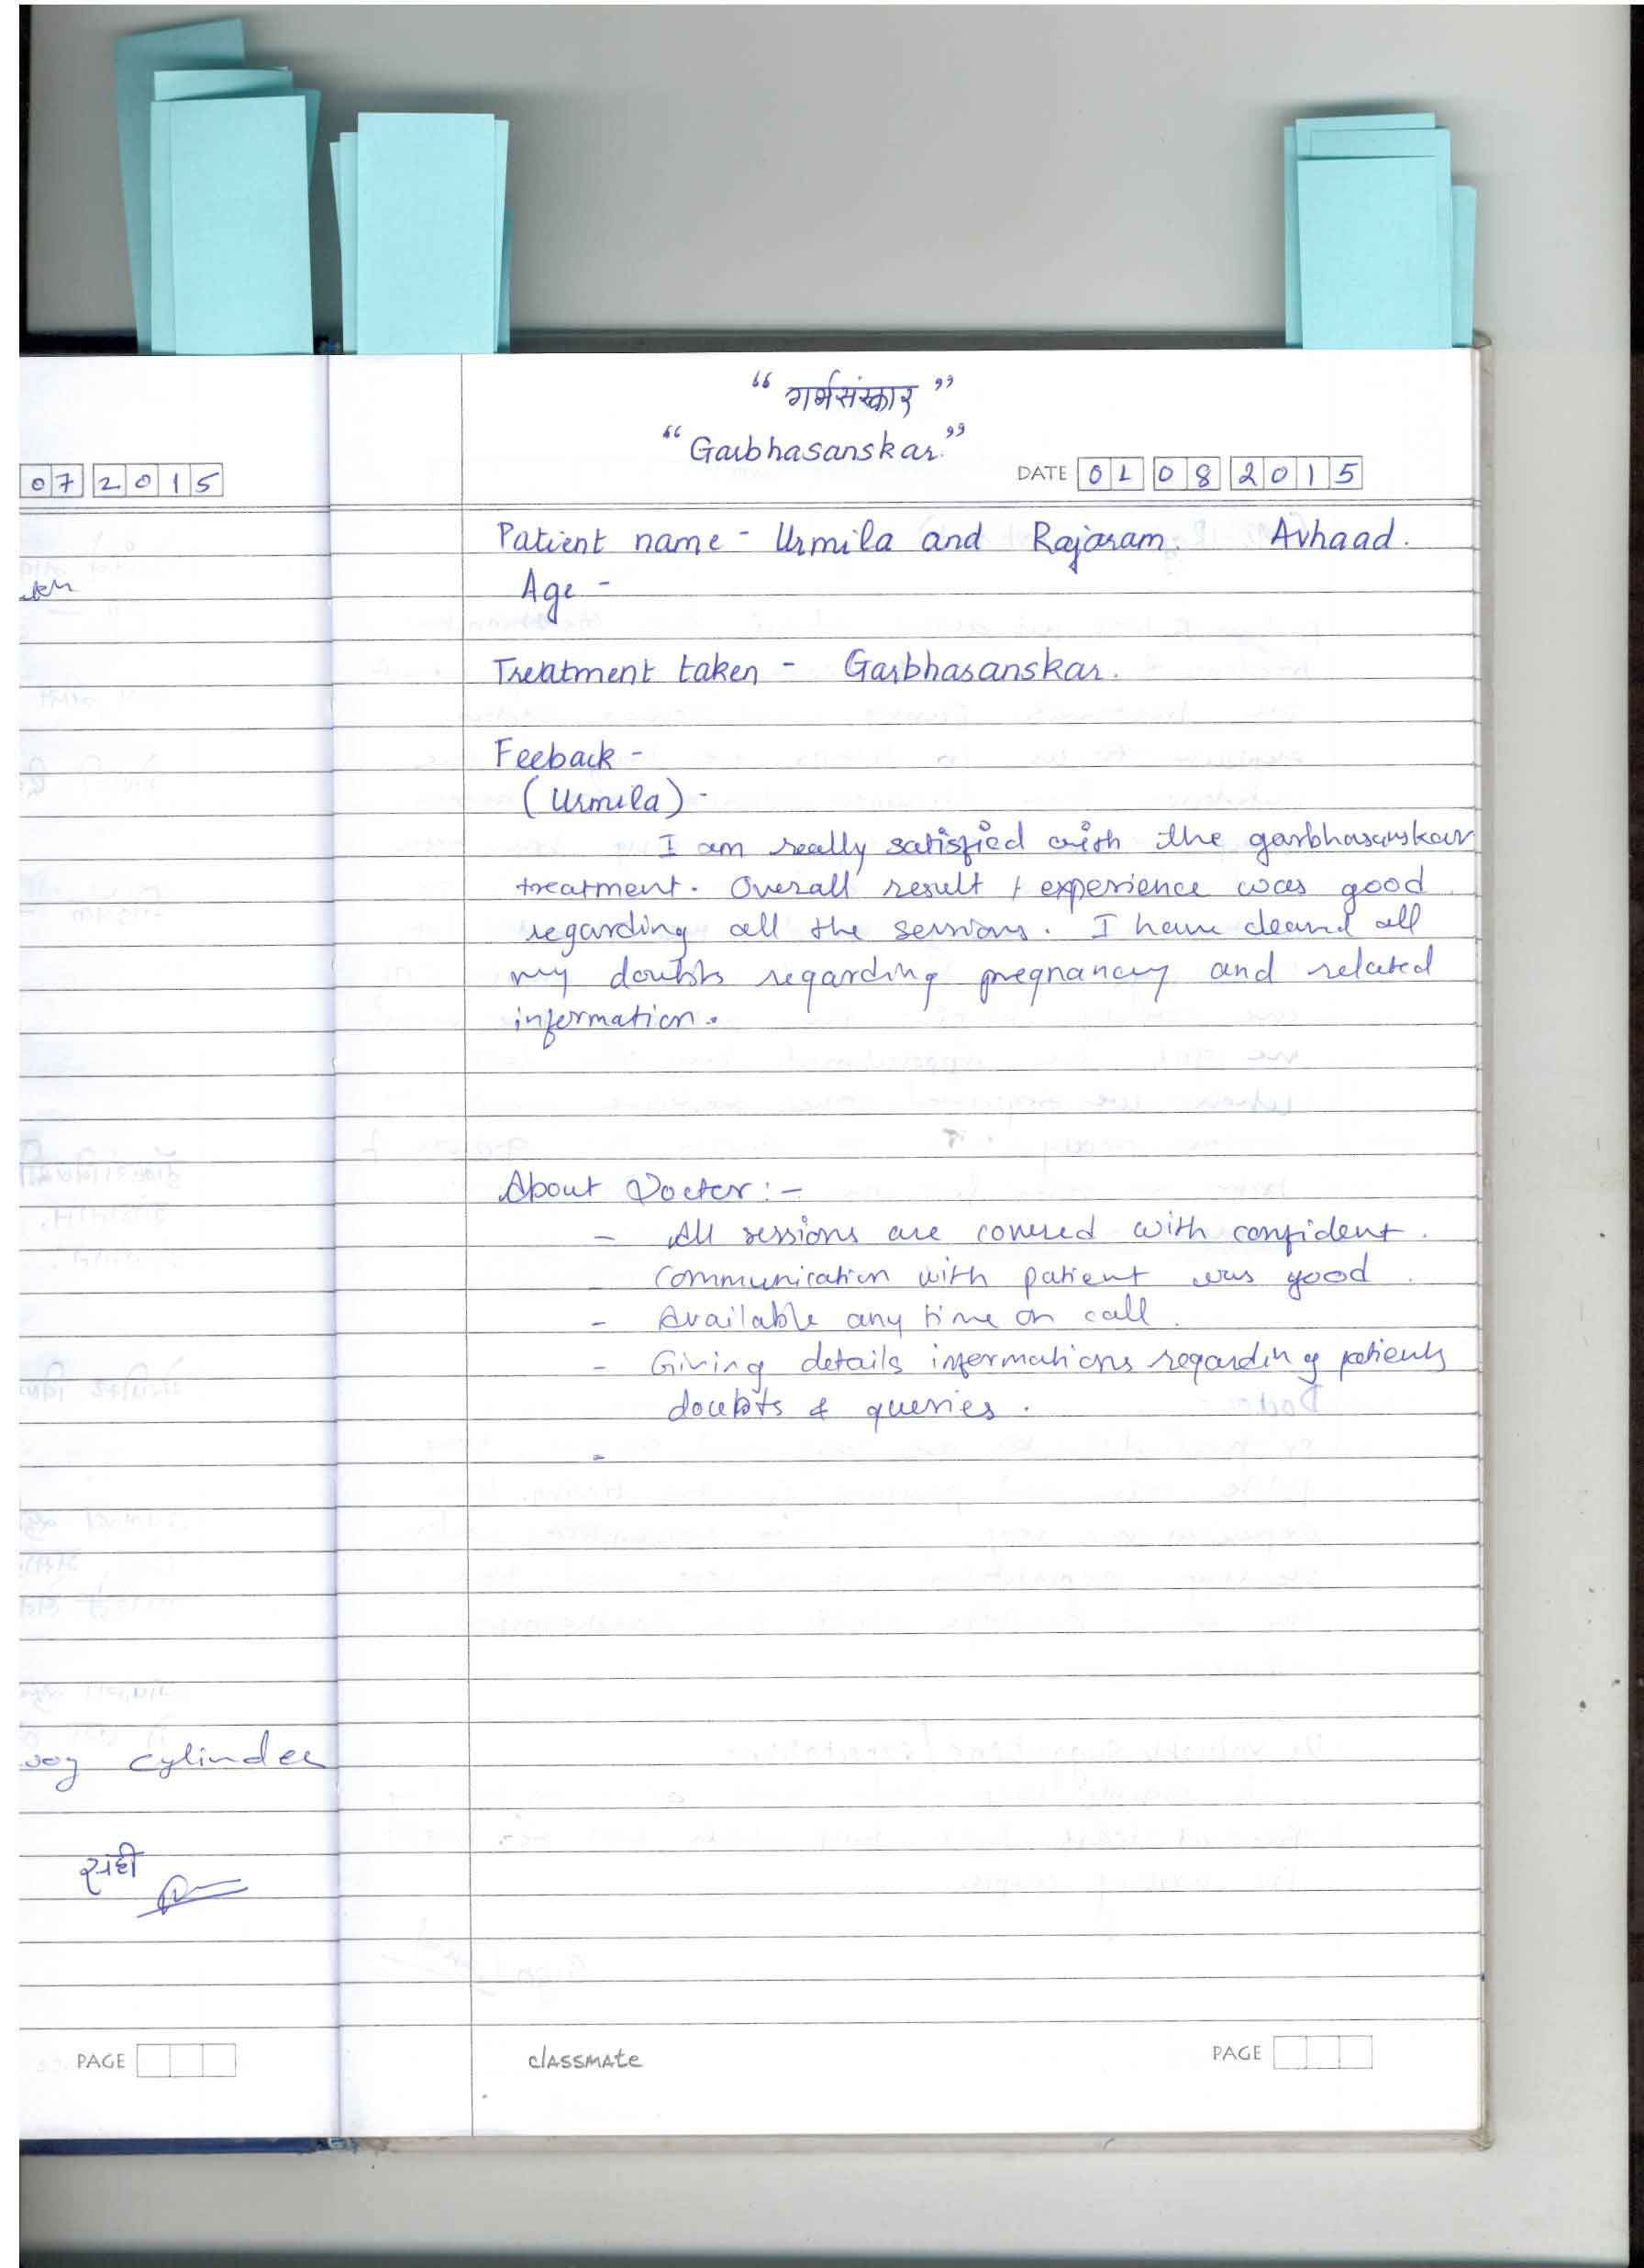 “ गर्भसंस्कार ”
“ Garbhasanskar. ”
DATE 01 08 2015
Patient name - Urmila and Rajaram. Avhaad.
Age -
Treatment taken - Garbhasanskar.
Feeback -
(Urmila) -
I am really satisfied with the garbhasanskar
treatment. Overall result / experience was good
regarding all the sessions. I have cleared all
my doubts regarding pregnancy and related
information.
About Doctor :-
- All sessions are covered with confident.
- Communication with patient was good.
- Available any time on call.
- Giving details informations regarding patients
doubts & queries.
-
classmate
PAGE
07 2015
cylinder
सही
PAGE